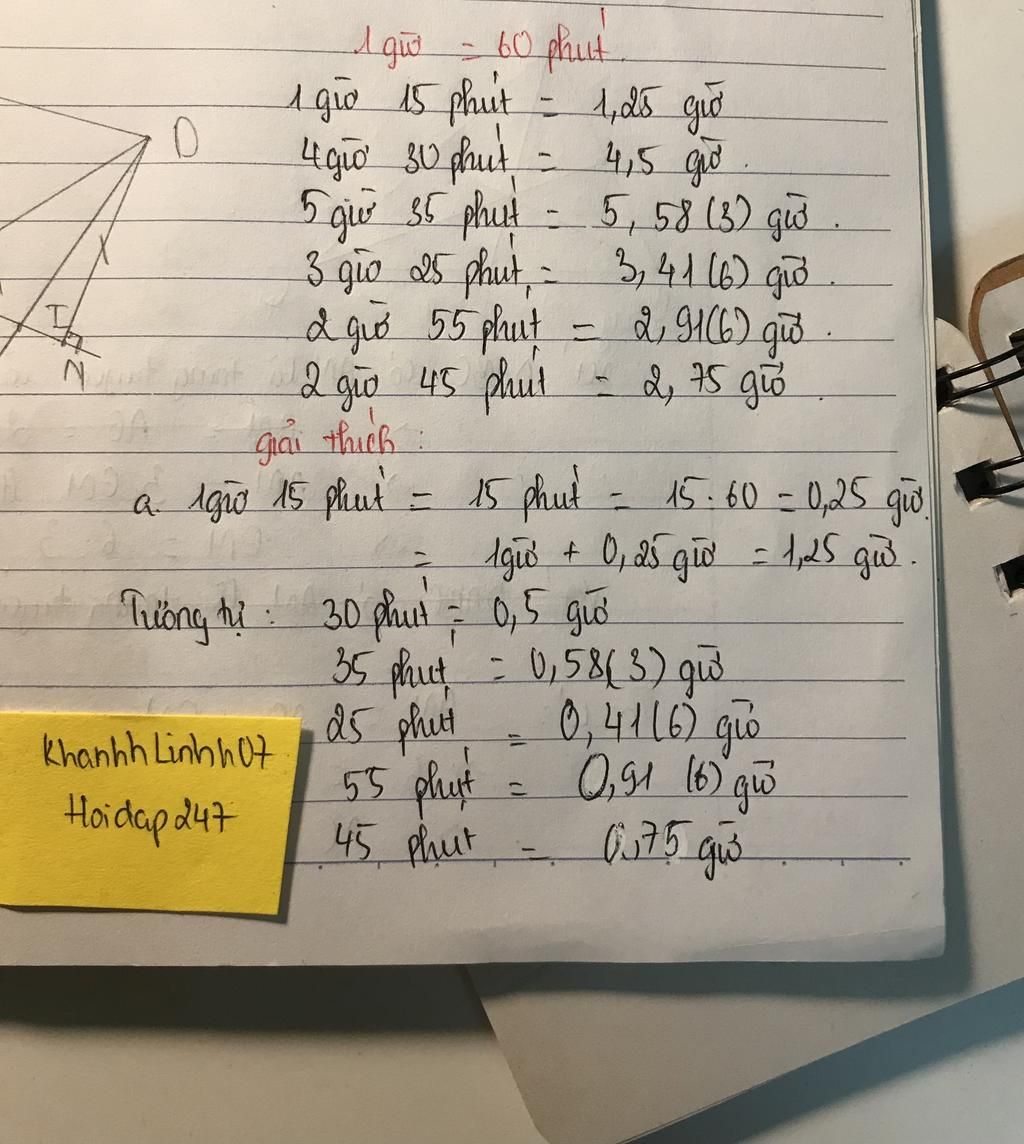 1 giờ = 60 phút.
1 giờ 15 phút = 1,25 giờ
4 giờ 30 phút = 4,5 giờ.
5 giờ 35 phút = 5,58(3) giờ.
3 giờ 25 phút = 3,41(6) giờ.
2 giờ 55 phút = 2,91(6) giờ.
2 giờ 45 phút = 2,75 giờ.
giải thích:
a. 1 giờ 15 phút = 15 phút = 15 : 60 = 0,25 giờ.
= 1 giờ + 0,25 giờ = 1,25 giờ.
Tương tự: 30 phút = 0,5 giờ
35 phút = 0,58(3) giờ
25 phút = 0,41(6) giờ
55 phút = 0,91(6) giờ
45 phút = 0,75 giờ
D
I
N
KhanhhLinhh07
Hoidap247